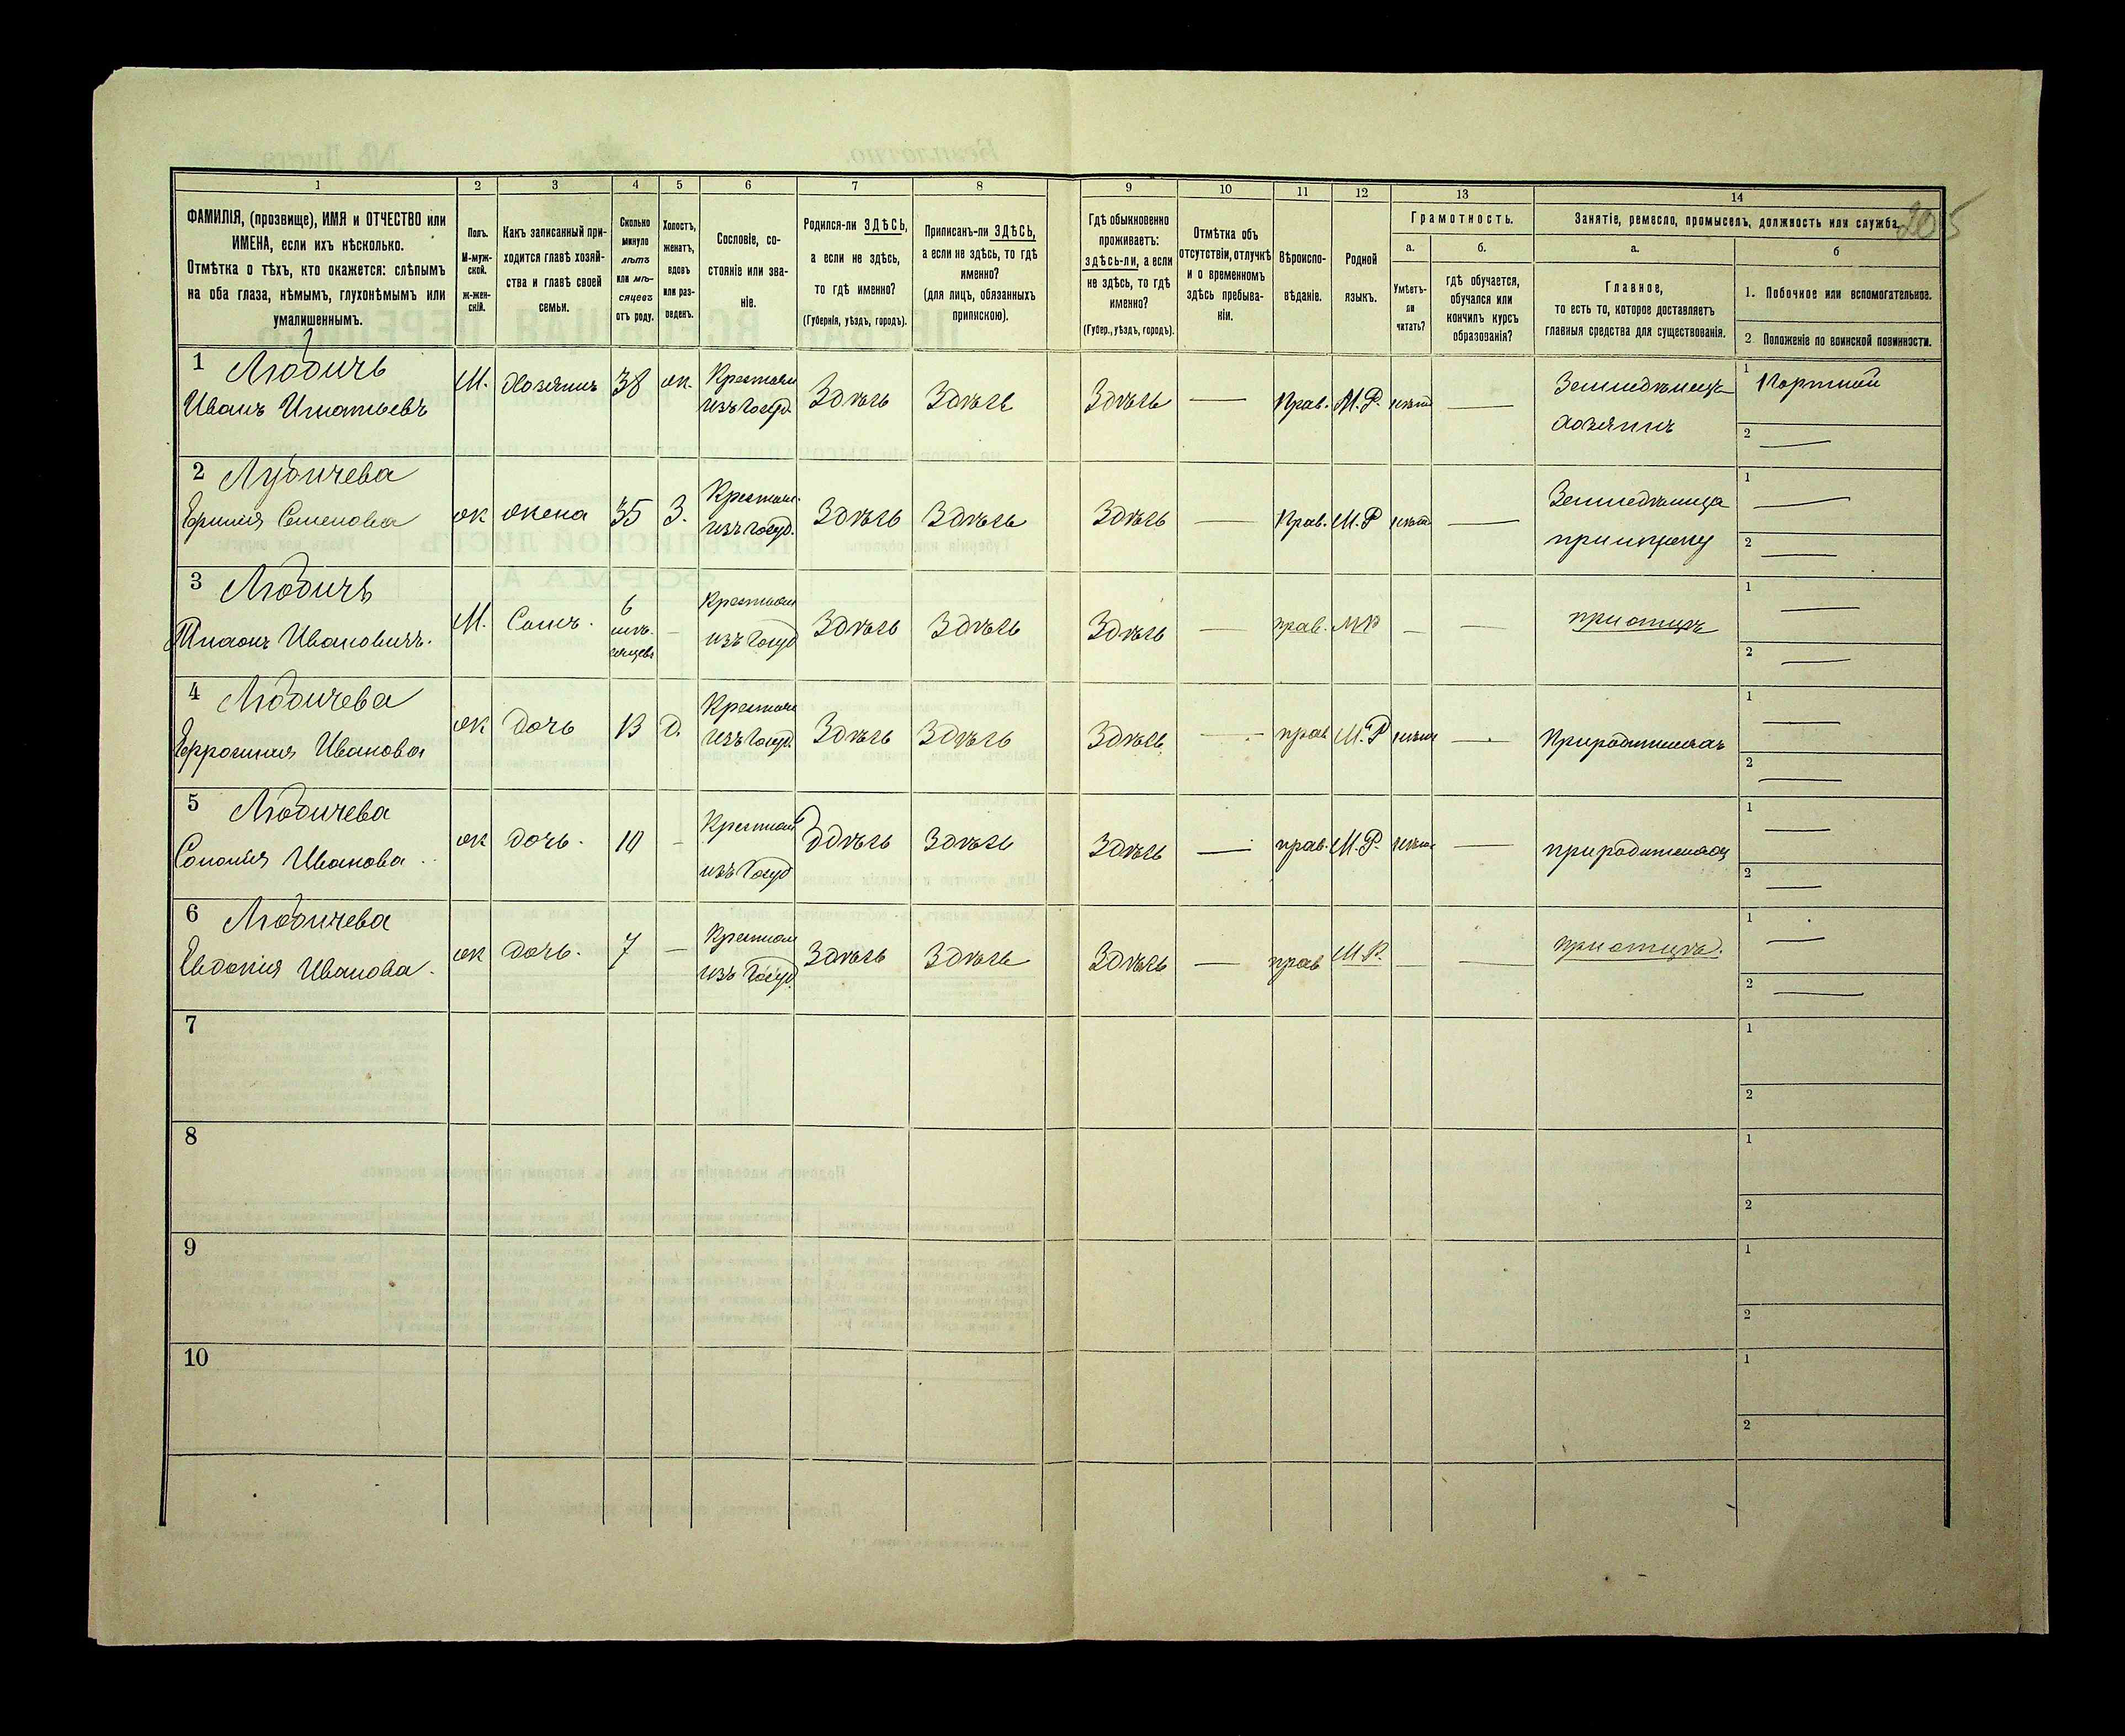 Безплатно.
№ Листа
205
1 2 3 4 5 6 7 8 9 10 11 12 13 14
ФАМИЛІЯ, (прозвище), ИМЯ и ОТЧЕСТВО или
ИМЕНА, если ихъ нѣсколько.
Отмѣтка о тѣхъ, кто окажется: слѣпымъ
на оба глаза, нѣмымъ, глухонѣмымъ или
умалишеннымъ.
Полъ.
М-муж-
ской.
Ж-жен-
скій.
Какъ записанный при-
ходится главѣ хозяй-
ства и главѣ своей
семьи.
Сколько
минуло
лѣтъ
или мѣ-
сяцевъ
отъ роду.
Холостъ,
женатъ,
вдовъ
или раз-
веденъ.
Сословіе, со-
стояніе или зва-
ніе.
Родился-ли ЗДѢСЬ,
а если не здѣсь,
то гдѣ именно?
(Губернія, уѣздъ, городъ).
Приписанъ-ли ЗДѢСЬ,
а если не здѣсь, то гдѣ
именно?
(для лицъ, обязанныхъ
припискою).
Гдѣ обыкновенно
проживаетъ:
здѣсь-ли, а если
не здѣсь, то гдѣ
именно?
(Губер., уѣздъ, городъ).
Отмѣтка объ
отсутствіи, отлучкѣ
и о временномъ
здѣсь пребыва-
ніи.
Вѣроиспо-
вѣданіе.
Родной
языкъ.
Грамотность.
а.
Умѣетъ-
ли
читать?
б.
гдѣ обучается,
обучался или
кончилъ курсъ
образованія?
Занятіе, ремесло, промыселъ, должность или служба.
а.
Главное,
то есть то, которое доставляетъ
главныя средства для существованія.
б
1. Побочное или вспомогательное.
2 Положеніе по воинской повинности.
1 Любичь
Иванъ Игнатьевъ
М. Хозяинъ 38 ж. Крестьян
изъ Госуд. Здѣсь Здѣсь Здѣсь — Прав. М.Р. нѣтъ —
Земледѣлецъ
хозяинъ
1 Портной
2 —
2 Лубичева
Семенова
ж жена 35 З. Крестьян.
изъ Госуд. Здѣсь Здѣсь Здѣсь — Прав. М.Р нѣтъ —
Земледѣлица
при мужу
1 —
2 —
3 Любичъ
Ивановичъ.
М. Сынъ. 6
мѣ-
сяцевъ — Крестьян
изъ Госуд Здѣсь Здѣсь Здѣсь — прав. МР — —
при отцѣ
1 —
2 —
4 Любичева
Ивановa
ж дочь 13 д. Крестьян
изъ Госуд. Здѣсь Здѣсь Здѣсь — прав М.Р нѣтъ —
При родителяхъ
1 —
2 —
5 Любичева
Иванова
ж дочь. 10 — Крестьян
изъ Госуд Здѣсь Здѣсь Здѣсь — прав. М.Р. нѣтъ —
при родителяхъ
1 —
2 —
6 Любичева
Евдокія Иванова.
ж дочь. 7 — Крестьян
изъ Госуд. Здѣсь Здѣсь Здѣсь — прав М.Р. — —
при отцѣ.
1 —
2 —
7
1
2
8
1
2
9
1
2
10
1
2